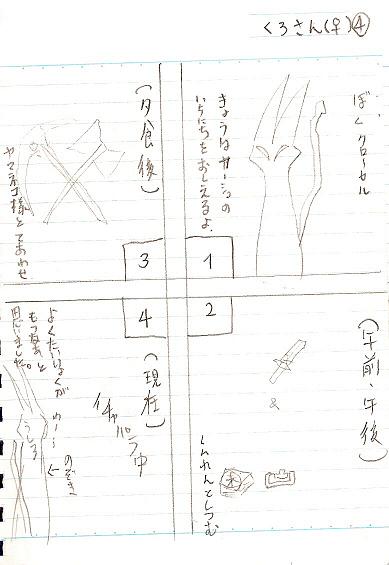 くろさん(♀)④
ぼく、クローセル
きょうは
いちにちをおしえるよ。
1
2
(午前、午後)
&
くんれんとしつむ
3
(夕食後)
ヤマネコ様とてあわせ
4
(現在)
イチャパラ中
のぞき
よくたいりょくが
もつなあと
思いました。
うしろ